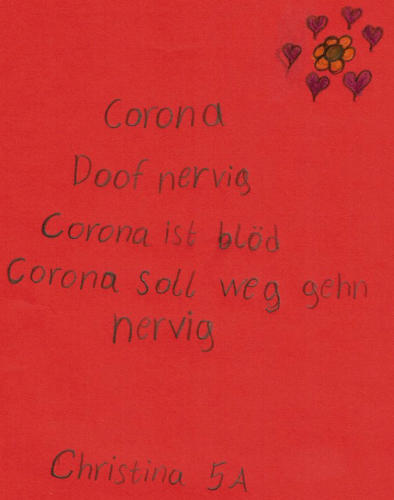 Corona
Doof nervig
Corona ist blöd
Corona soll weg gehn
nervig
Christina 5A